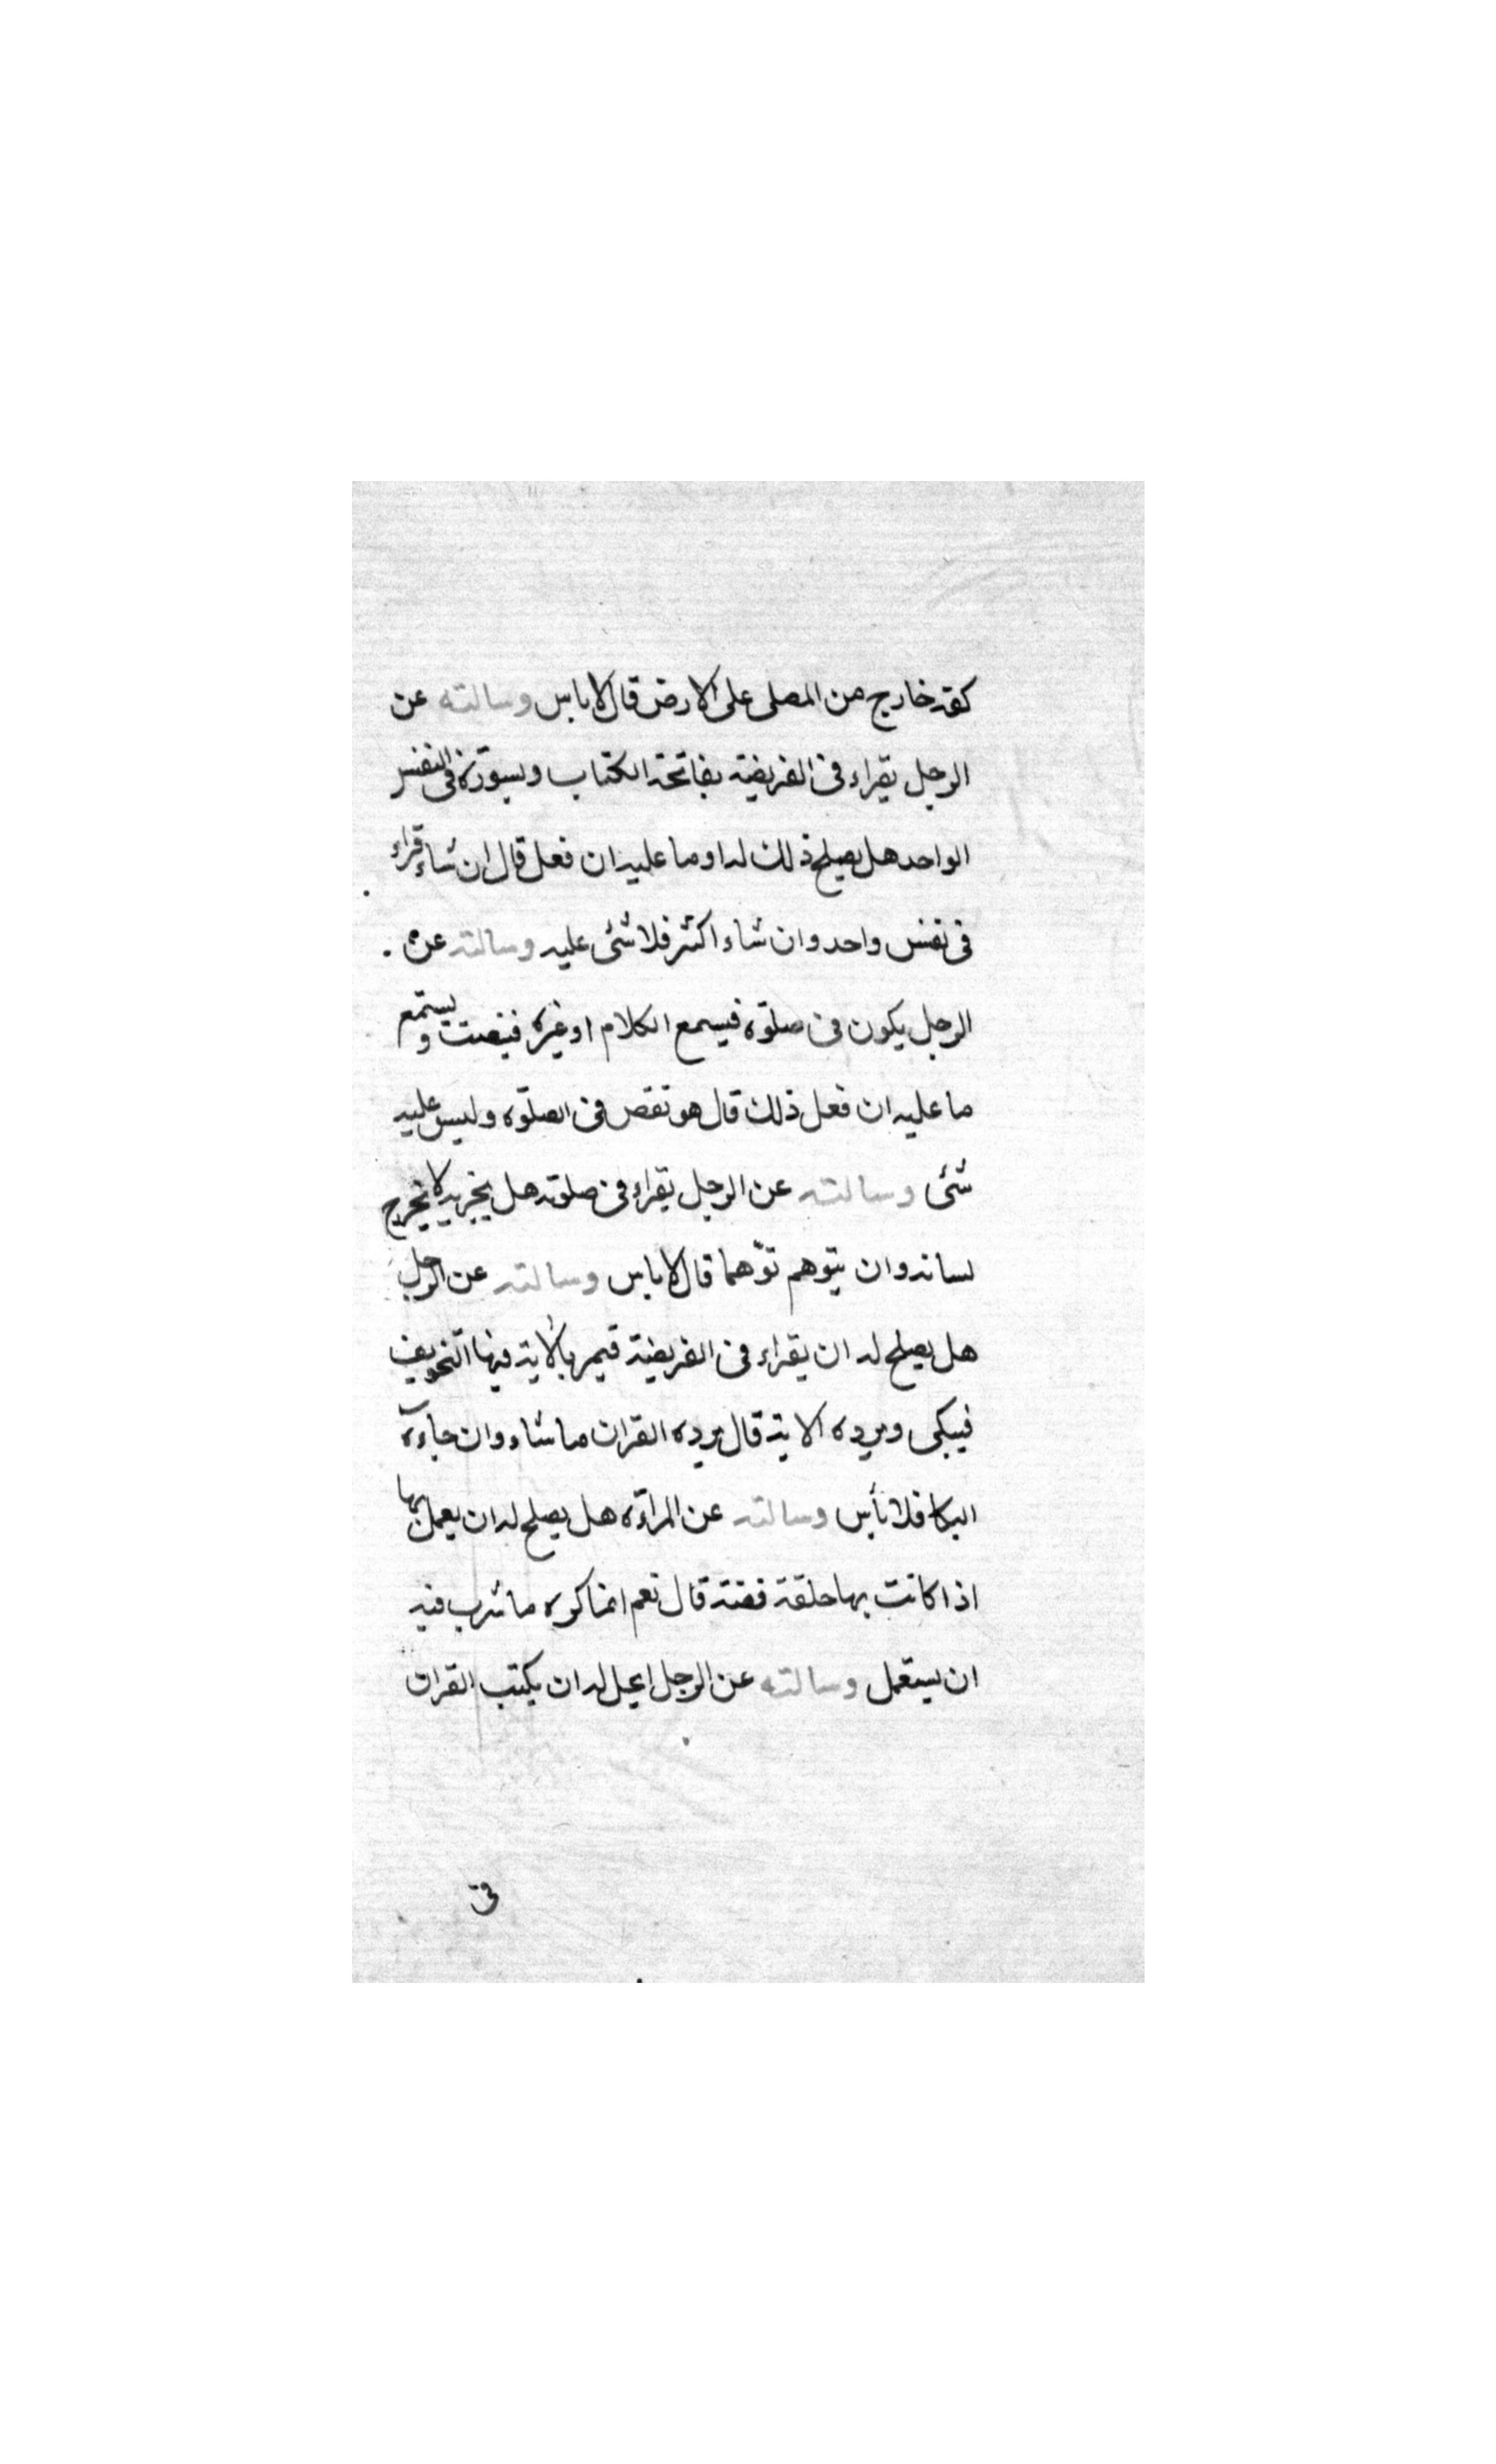 كفه خارج من المصلى على الارض قال لا باس وسالته عن
الرجل يقراء فى الفريضة بفاتحة الكتاب وبسورة فى النفس
الواحد هل يصلح ذلك له او ما عليه ان فعل قال ان شاء قراء
فى نفس واحد وان شاء اكثر فلا شئ عليه وسالته عن
الرجل يكون فى صلوته فيسمع الكلام او غيره فينصت ويستمع
ما عليه ان فعل ذلك قال هو نقص فى الصلوة وليس عليه
شئ وسالته عن الرجل يقراء فى صلوته هل يجزيه لا يخرج
لسانه وان يتوهم توّهما قال لا باس وسالته عن الرجل
هل يصلح له ان يقراء فى الفريضة فيمر بالاية فيها التخويف
فيبكى ويرده الاية قال يرده القران ما شاء وان جاءه
البكا فلا بأس وسالته عن المراءة هل يصلح له ان يعمل بها
اذا كانت بها حلقة فضة قال نعم انما كره ما شرب فيه
ان يستعمل وسالته عن الرجل ايحل له ان يكتب القران
فى